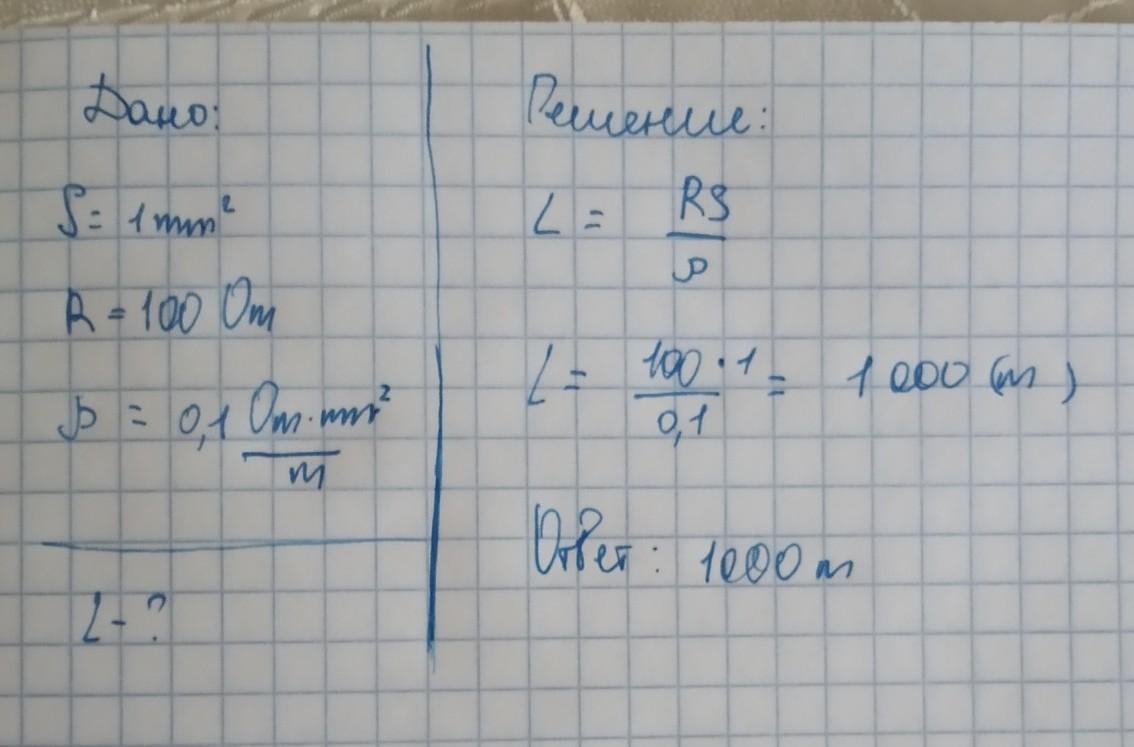 Дано:
S = 1 mm²
R = 100 Om
ρ = 0,1 Om·mm²/m
L - ?
Решение:
L = RS/ρ
L = 100·1/0,1 = 1000 (m)
Ответ: 1000 m